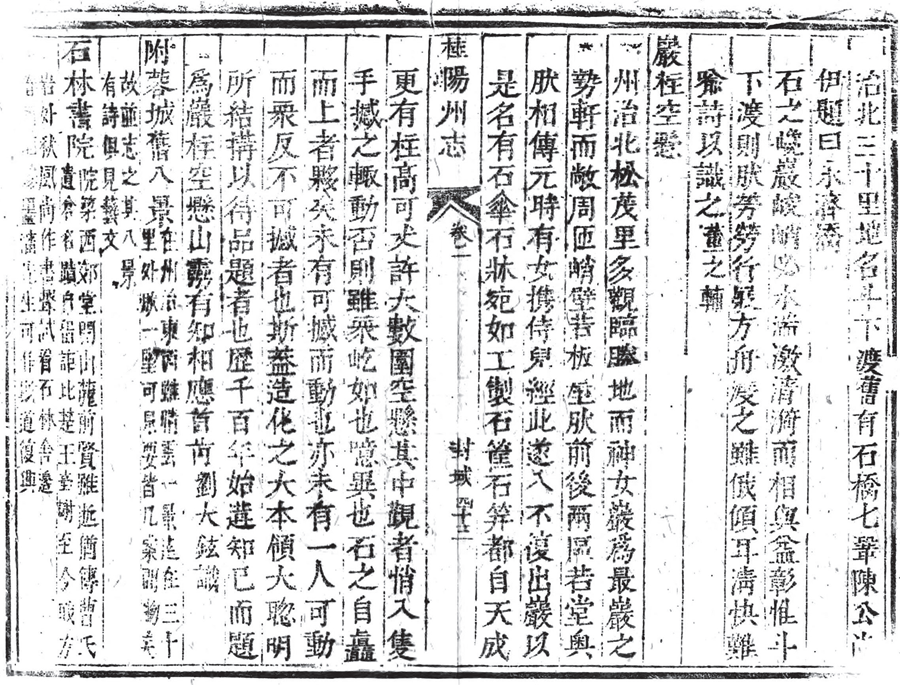 治北三十里地名斗下渡舊有石橋七鞏陳公尚
伊題曰永濟橋
石之巉巖峻峭必水湍激清漪而相與益彰惟斗
下渡則肰勞勞行旌方舟渡之雖俄傾耳淸快難
爲詩以識之董之輔
巖柱空懸
州治北松茂里多觀臨勝地而神女巖爲最巖之
勢軒而敞周匝峭壁若板壁肰前後兩區若堂奧
肰相傳元時有女携侍兒經此遂入不復出巖以
是名有石傘石牀宛如工製石篷石筭都自天成
桂陽州志
卷一
封域
四十二
更有柱高可丈許大數圍空懸其中觀者悄入隻
手撼之輒動否則雖衆屹如也噫異也石之自矗
而上者夥矣未有可撼而動也亦未有一人可動
而衆反不可撼者也斯蓋造化之大本領大聰明
所結搆以待品題者也歷千百年始遘知已而題
爲巖柱空懸山靈有知相應首肯劉大鉉識
附蓉城舊八景在州治東西雖晴雲一景是在三十
里外皆几案間物矣
故並志之其八景
有詩俱見藝文
石林書院院築西郊堂門山龍前賢雖逝猶傳曹氏
遺倉名自此楚王臺謝至今
處秋風尚作聲試看石林舍
生可道復興